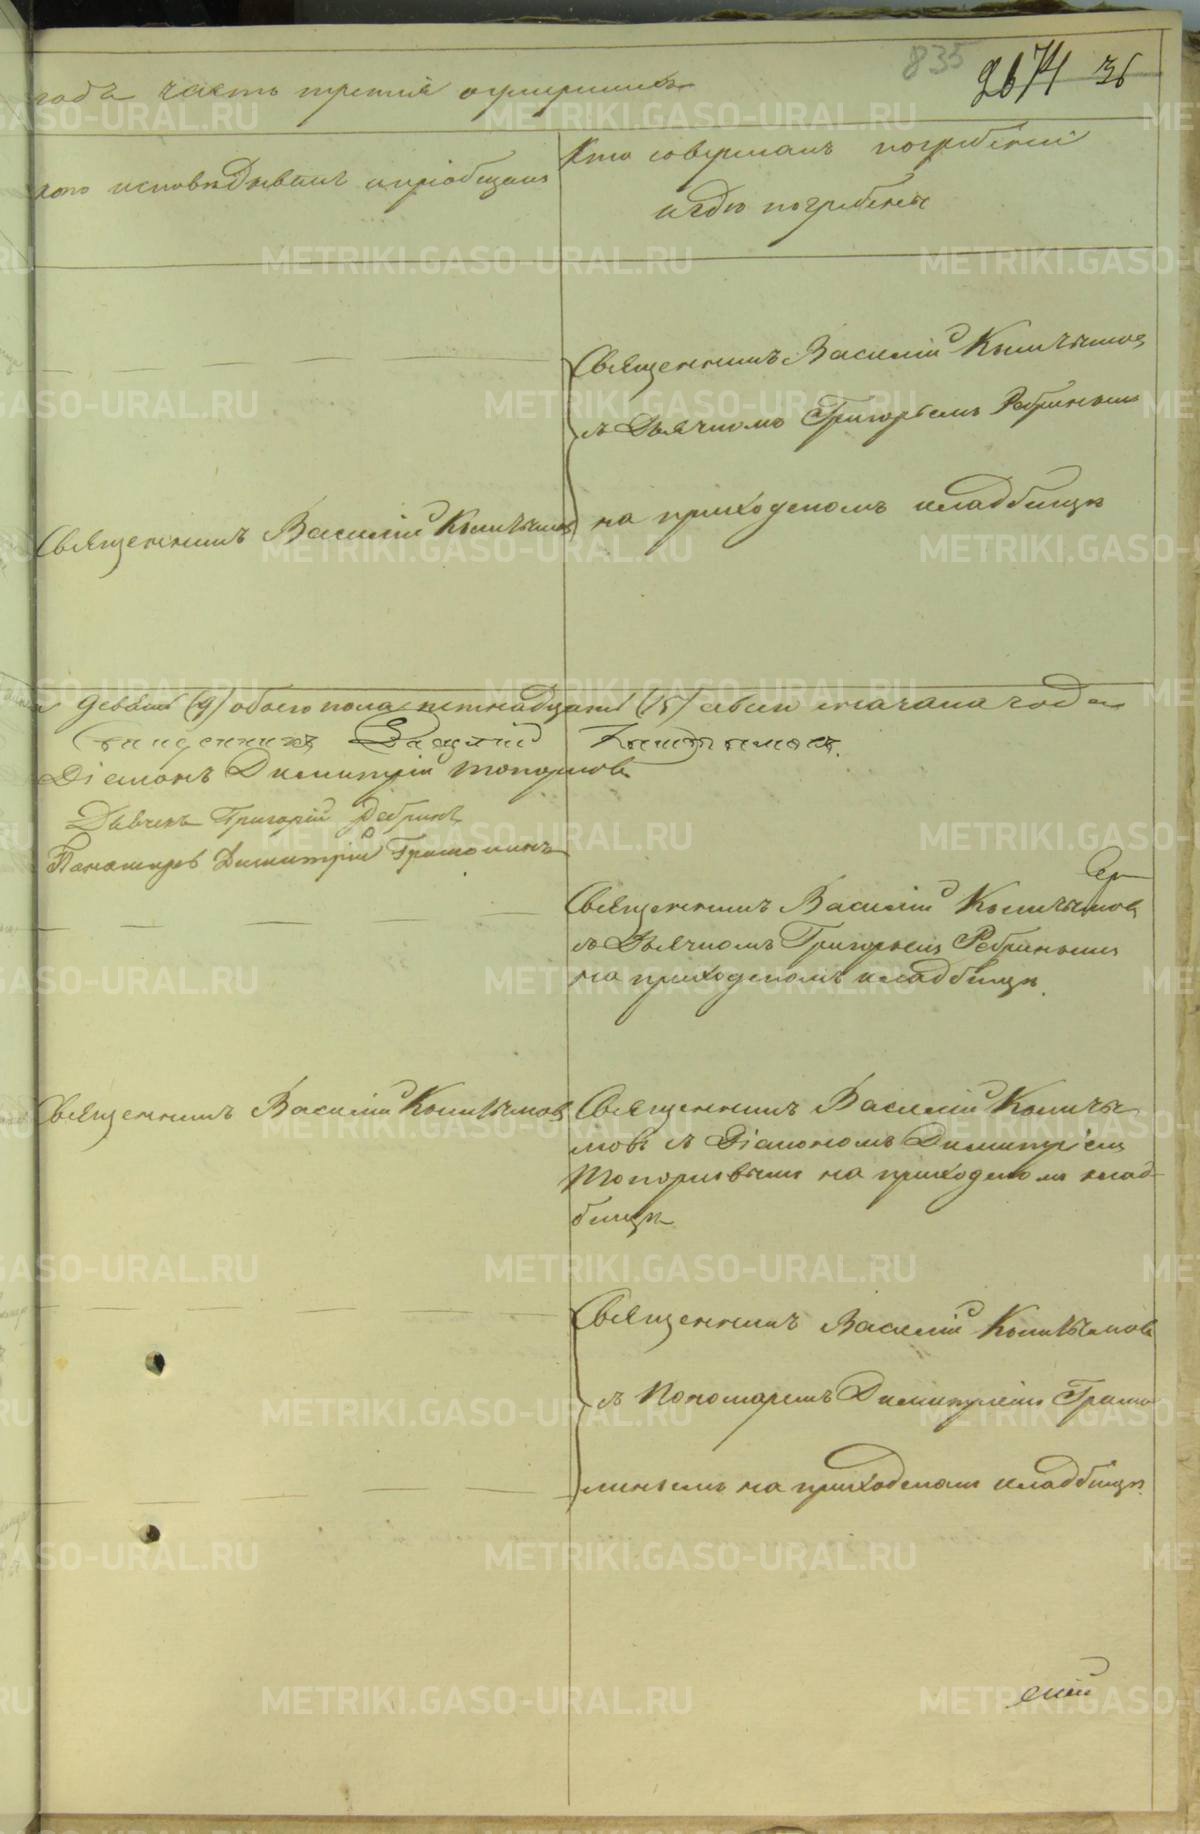 835 2674 36
года часть третия о умершихъ
кто исповѣдывалъ и приобщалъ
Кто совершалъ погребение
и гдѣ погребены
Священникъ Василий Кыштымов
съ Дьячкомъ Григорьемъ Ребринымъ
на приходскомъ кладбищѣ
Священникъ Василий Кыштымов
девять (9) обоего пола пятнадцать (15) а всего сначала года
Священникъ Василий Кыштымовъ.
Діаконъ Димитрій Топорковъ
Дьячекъ Григорій Ребринъ
Пономарь Димитрій Грамолинъ
Священникъ Василий Кыштымов
съ Дьячкомъ Григорьемъ Ребринымъ
на приходскомъ кладбищѣ.
Священникъ Василий Кыштымов
Священникъ Василий Кышты
мовъ съ Діакономъ Димитріемъ
Топорковымъ на приходскомъ клад-
бищѣ
Священникъ Василий Кыштымовъ
съ Пономаремъ Димитріемъ Грамо
линымъ на приходскомъ кладбищѣ.
METRIKI.GASO-URAL.RU